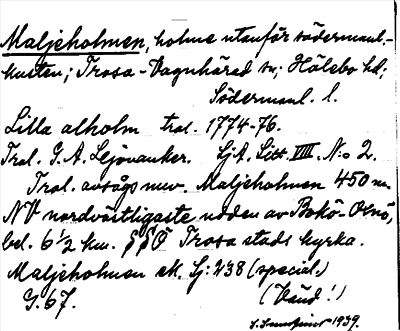 Maljeholmen, holme utanför södermanl.-
kusten; Trosa-Vagnhärad sn; Hölebo hd;
Södermanl. l.
Lilla alholm tral. 1774-76.
Tral. G. A. Lejonanker. SjA. Litt. VIII. N:o 2.
Tral. avsågs nuv. Maljeholmen 450 m.
NV nordvästligaste udden av Bokö-Oxnö,
bel. 6 1/2 km. SSÖ Trosa stads kyrka.
Maljeholmen ek. Sj: 238 (special.)
G. 67. (Vänd!)
1939.